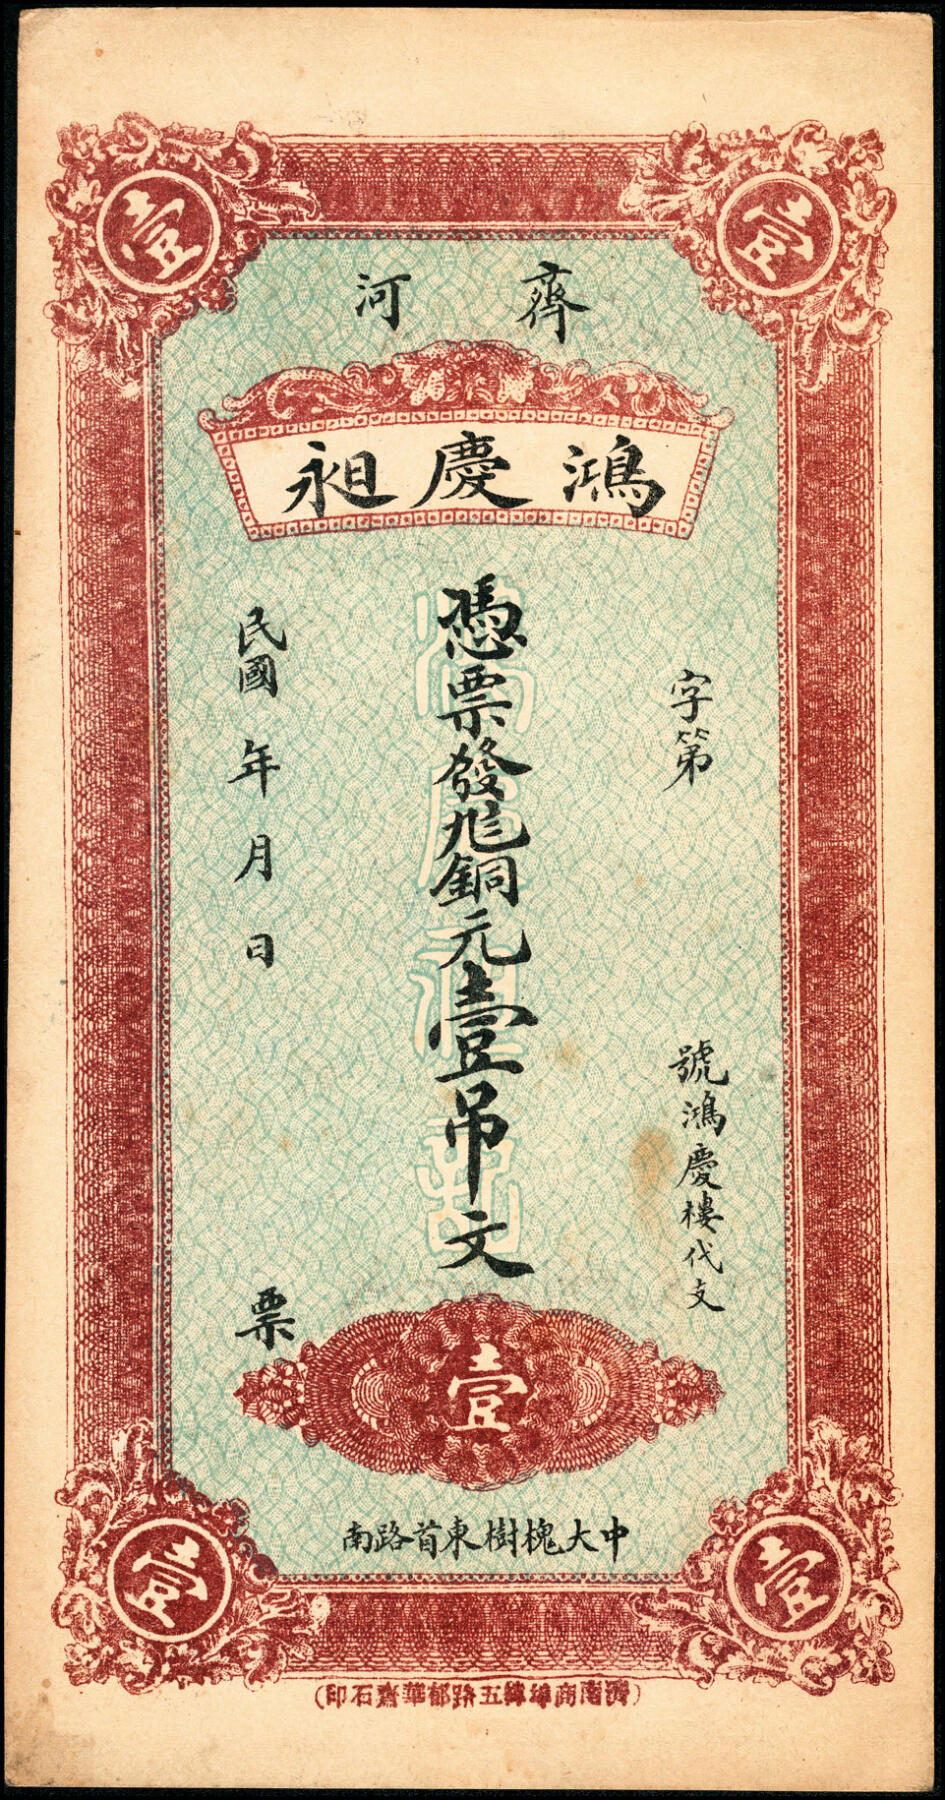 壹 壹
齊河
鴻慶昶
字第 號鴻慶樓代支
憑票發兌銅元壹吊文
民國 年 月 日 票
壹
中大槐樹東首路南
壹 壹
(濟南商埠緯五路郁華齋石印)